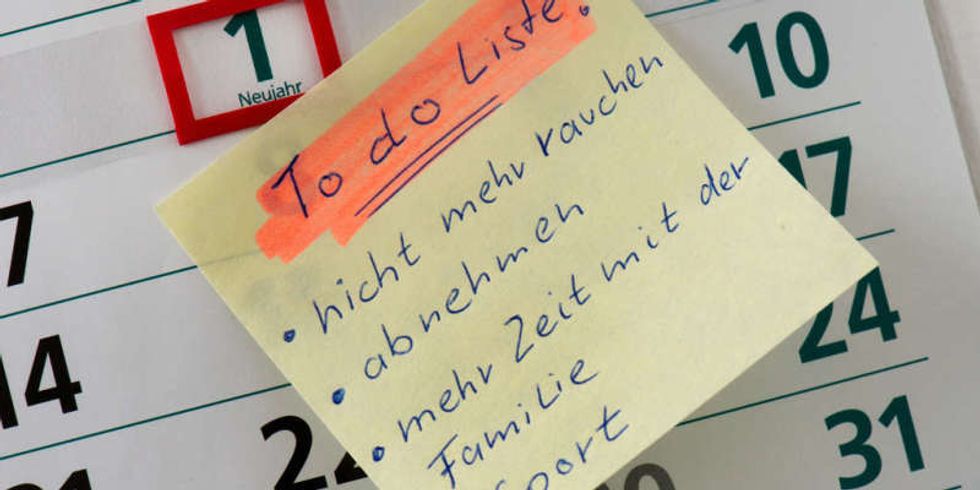 1
Neujahr
10
7
17
14
24
31
To do Liste:
• nicht mehr rauchen
• abnehmen
• mehr Zeit mit der
Familie
Sport